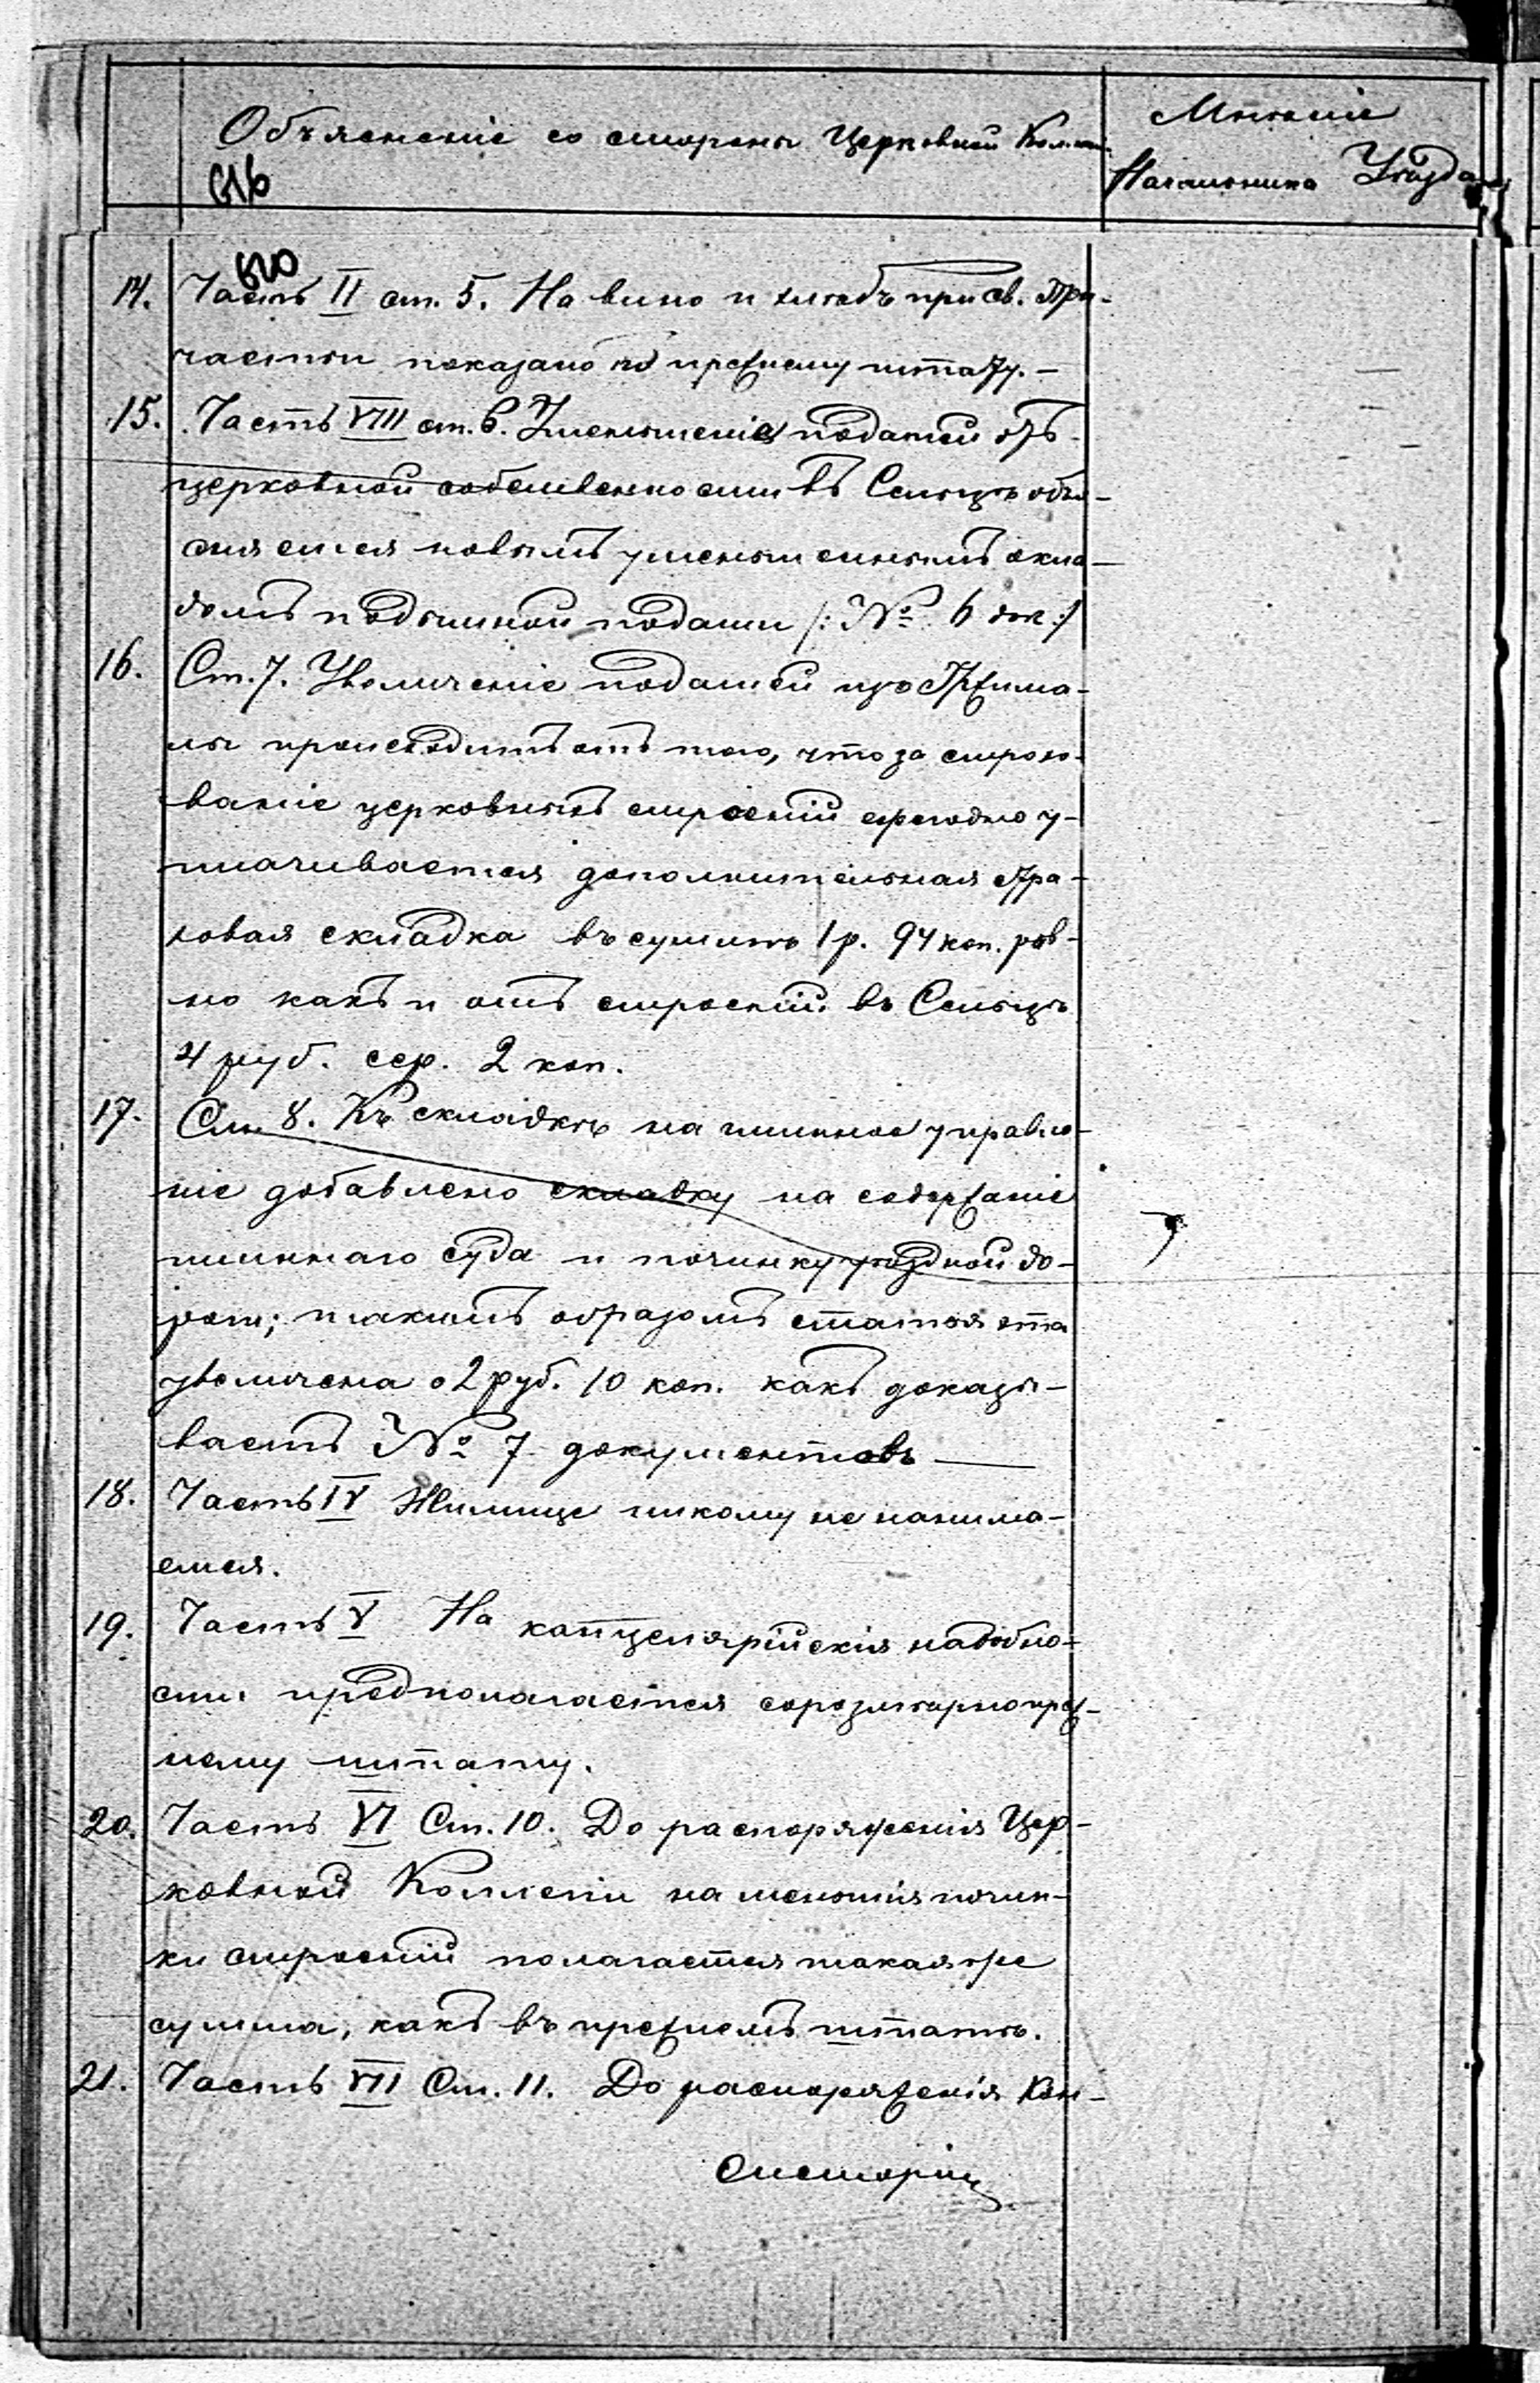 Объясненіе со стороны Церковной Коллегіи
Мнѣніе
Начальника Уѣзда
616
620
14. Часть II ст. 5. На вино и хлѣбъ при св. При-
частіи показано по прежнему штату. –
15. Часть VIII ст. 6. Уменьшенія податей отъ
церковной собственности въ Сельцѣ объя-
сняется новымъ уменьшеннымъ окла-
домъ подымной подати /: № 6 док :/
16. Ст. 7. Увеличеніе податей изъ
лы происходитъ отъ того, что за страхо-
ваніе церковныхъ строеній ежегодно у-
плачивается дополнительная
ковая складка въ суммѣ 1 р. 94 коп. рав-
но какъ и отъ строеній въ Сельцѣ
4 руб. сер. 2 коп.
17. Ст. 8. Къ складкѣ на гминное управле-
ніе добавлено складку на содержаніе
гминнаго суда и починку уѣздной до-
роги; такимъ образомъ статья эта
увеличена о 2 руб. 10 коп. какъ доказы-
ваетъ № 7 документовъ —
18. Часть IV Жилище никому не нанима-
ется.
19. Часть V На канцелярійскія надобно-
сти предполагается соразмѣрно преж-
нему штату.
20. Часть VI Ст. 10. До распоряженія Цер-
ковной Коллегіи на меньшія почин-
ки строеній полагается такая же
сумма, какъ въ прежнемъ штатѣ.
21. Часть VII Ст. 11. До распоряженія Кон-
систоріи